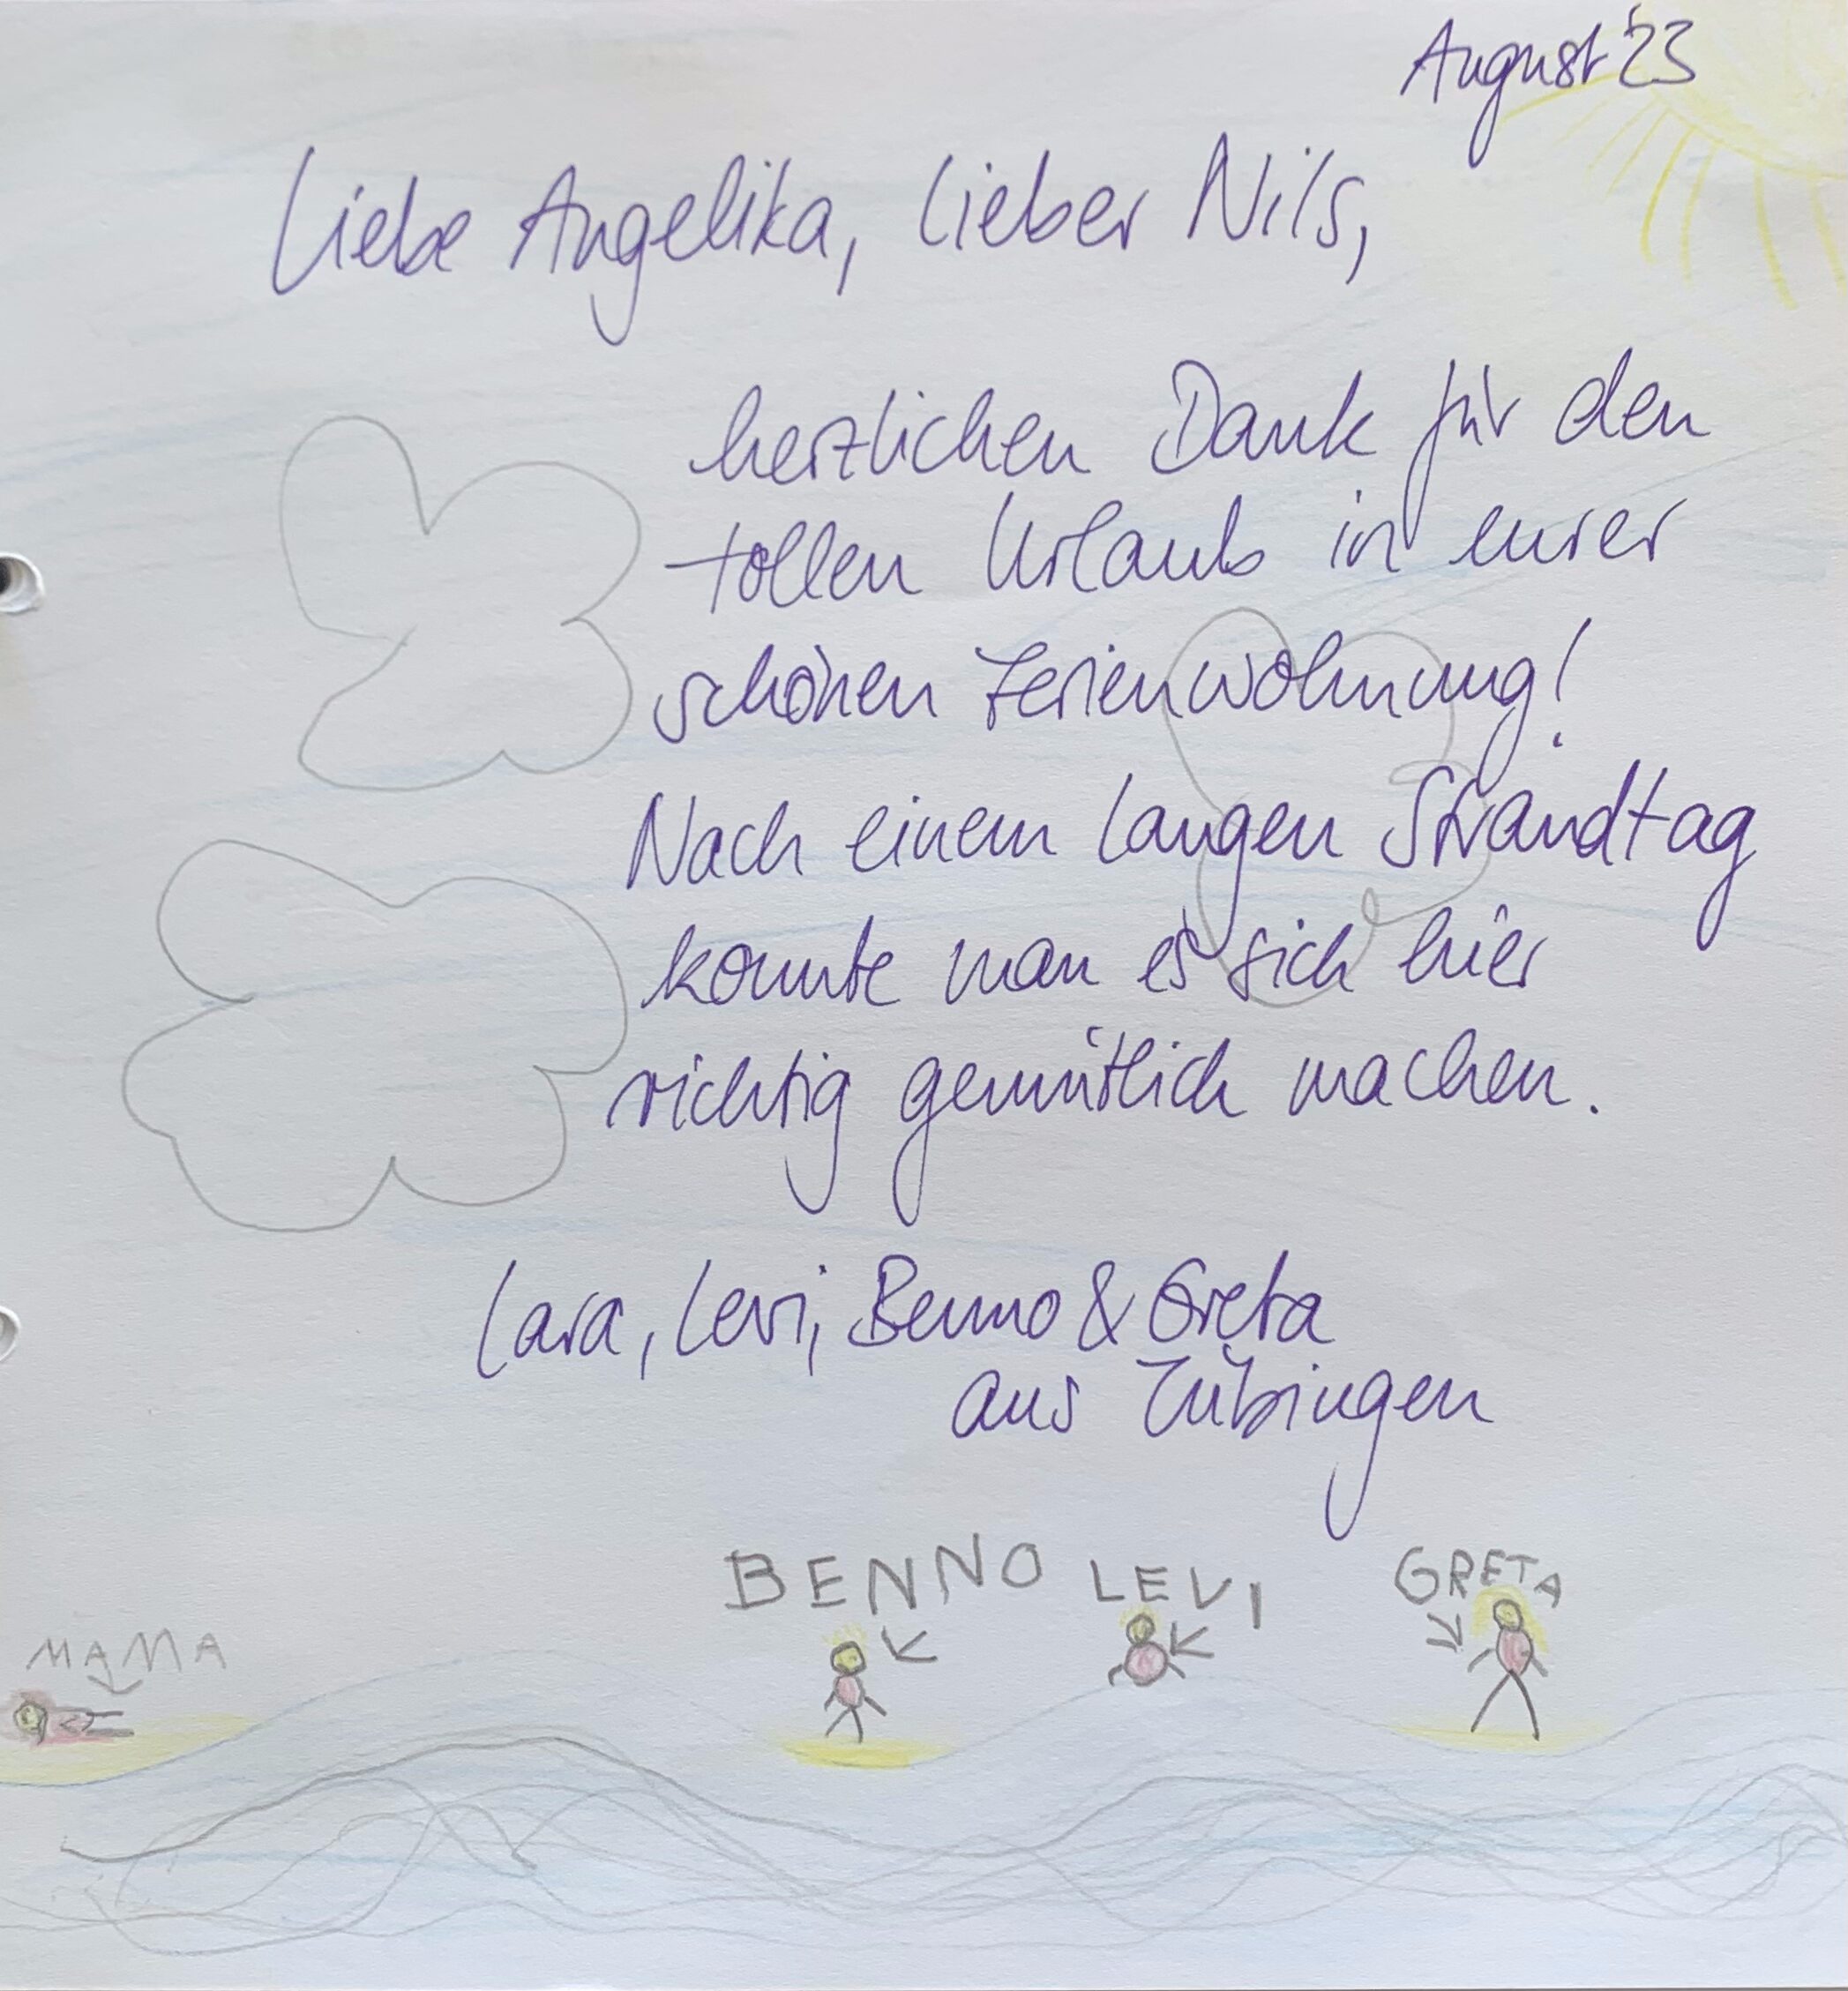 August '23
Liebe Angelika, lieber Nils,
herzlichen Dank für den
tollen Urlaub in eurer
schönen Ferienwohnung!
Nach einem langen Strandtag
konnte man es sich hier
richtig gemütlich machen.
Lara, Levi, Benno & Greta
aus Tübingen
BENNO LEVI GRETA
MAMA